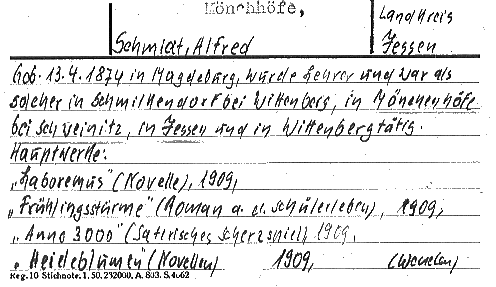 Mönchhöfe,
Landkreis
Schmidt, Alfred
Jessen
Geb. 13.4.1874 in Magdeburg, wurde Lehrer und war als
solcher in Schmilkendorf bei Wittenberg, in Mönchenhöfe
bei Schweinitz, in Jessen und in Wittenberg tätig.
Hauptwerke:
„Laboremus" (Novelle), 1909,
„Frühlingsstürme" (Roman a. d. Schülerleben), 1909,
„Anno 3000" (Satirisches Scherzspiel) 1909,
„Heideblumen" (Novellen) 1909,
Reg. 10 Stichnote. 1. 50. 232000, A. 803. S. 4062